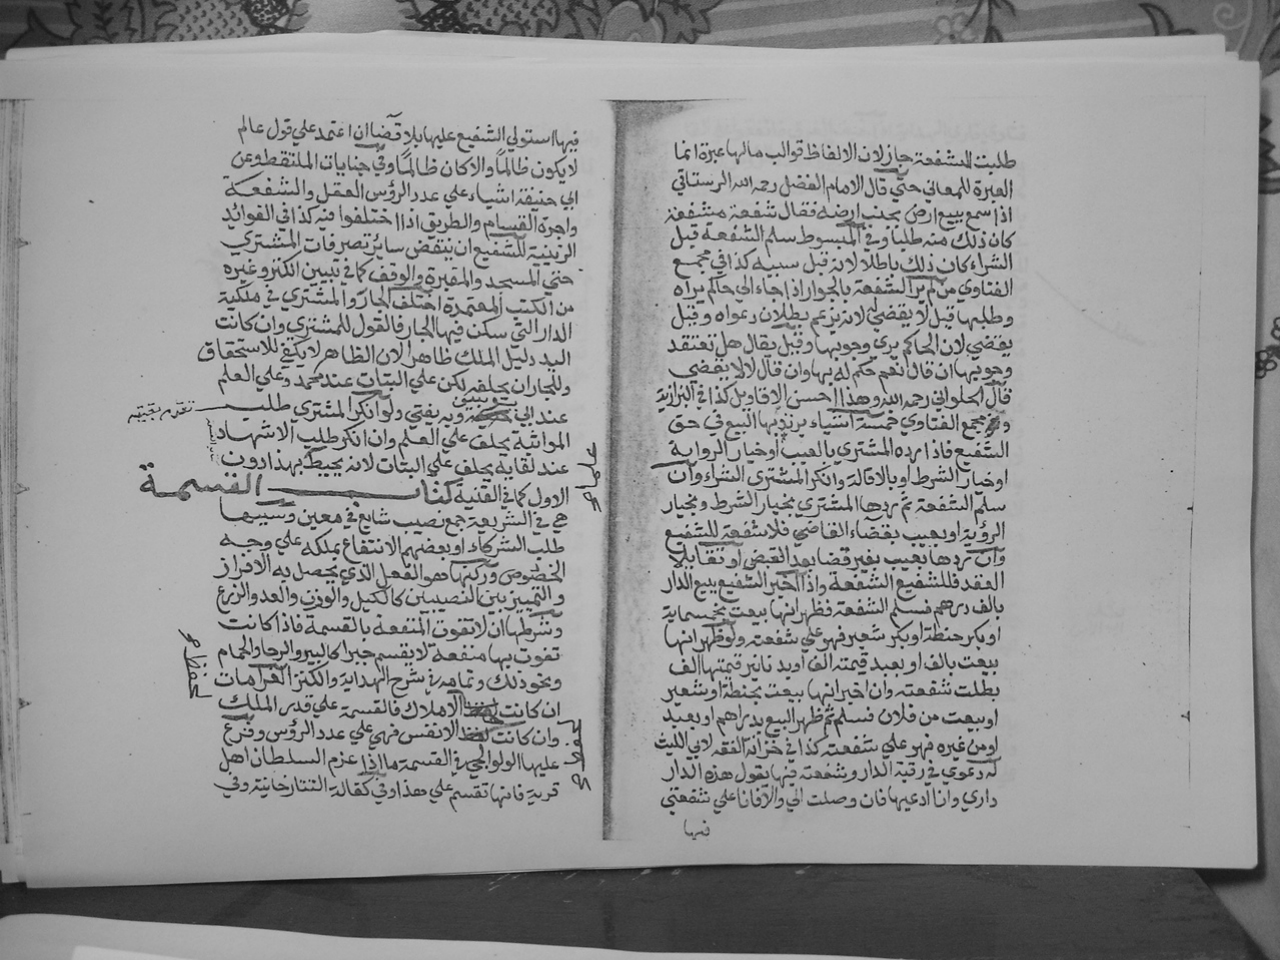 طلبت للشفعة جاز لان الالفاظ قوالب مالها عبرة انما
العبرة للمعاني حتي قال الامام الفضل رحمه الله الرستاقي
اذا سمع ببيع ارض بجنب ارضه فقال شفعة مشفعة
كان ذلك منه طلبا وفي المبسوط سلم الشفعة قبل
الشراء كان ذلك باطلا لانه قبل سببه كذا في مجمع
الفتاوي من لم يرا الشفعة بالجوار اذا جاء الي حاكم يراه
وطلبها قبل لا يقضي لانه يزعم بطلان دعواه وقيل
يقضي لان الحاكم يري وجوبها وقيل يقال هل تعتقد
وجوبها ان قال نعم حكم له بها وان قال لا لا يقضي
قال الحلواني رحمه الله وهذا احسن الاقاويل كذا في البزازية
وفي مجمع الفتاوي خمسة اشياء يرتد بها البيع في حق
الشفيع فاذا رده المشتري بالعيب او خيار الرواية
او خيار الشرط او بالاقالة وانكر المشتري الشراء وان
سلم الشفعة ثم ردها المشتري بخيار الشرط وبخيار
الرؤية او بعيب بقضاء القاضي فلا شفعة للشفيع
وان ردها بعيب بغير قضا بعد القبض او تقايلا
العقد فللشفيع الشفعة واذا اخبر الشفيع ببيع الدار
بالف درهم فسلم الشفعة فظهر انها بيعت بخمسماية
او بكر حنطة او بكر شعير فهو علي شفعته ولو ظهر انها
بيعت بالف او بعبد قيمته الف او بدنانير قيمتها الف
بطلت شفعته وان اخبر انها بيعت بحنطة او شعير
او بيعت من فلان فسلم ثم ظهر البيع بدراهم او بعبد
او من غيره فهو علي شفعته كذا في خزانة الفقه لابي الليث
له دعوي في رقبة الدار وشفعته فيها يقول هذه الدار
داري وانا ادعيها فان وصلت الي والا فانا علي شفعتي
فيها
فيها استولي الشفيع عليها بلا قضاان اعتمد علي قول عالم
لا يكون ظالما والا كان ظالما وفي جنايات الملتقط وعن
ابي حنيفة اشياء علي عدد الرؤس العقل والشفعة
واجرة القسام والطريق اذا اختلفوا فيه كذا في الفوائد
الزينية للشفيع ان ينقض سائر تصرفات المشتري
حتي المسجد والمقبرة والوقف كما في تبيين الكنز وغيره
من الكتب المعتمدة اختلف الجار والمشتري في ملكية
الدار التي سكن فيها الجار فالقول للمشتري وان كانت
اليد دليل الملك ظاهرا لان الظاهر لا يكفي للاستحقاق
وللجار ان يحلفه لكن علي البتات عند محمد وعلي العلم
عند ابي يوسف وبه يفتي ولو انكر المشتري طلب
المواثبة يحلف علي العلم وان انكر طلب الاشهاد
عند لقايه يحلف علي البتات لانه يحيط بهذا دون
الاول كما في القنية كتاب القسمة
هي في الشريعة جمع نصيب شايع في معين وسببها
طلب الشركاء او بعضهم الانتفاع بملكه علي وجه
الخصوص وركنها هو الفعل الذي يحصل به الافراز
والتمييز بين النصيبين كالكيل والوزن والعد والزرع
وشرطها ان لا تفوت المنفعة بالقسمة فاذا كانت
تفوت بها منفعة لا يقسم جبرا كالبير والرحا والحمام
ونحو ذلك وتمامه في شرح الهداية والكنز الغرامات
ان كانت لحفظ الاملاك فالقسمة علي قدر الملك
وان كانت لحفظ الانفس فهي علي عدد الرؤس وفرع
عليها الولوالجي في القسمة ما اذا عزم السلطان اهل
قرية فانها تقسم علي هذا وفي كفالة التتارخانية وفي